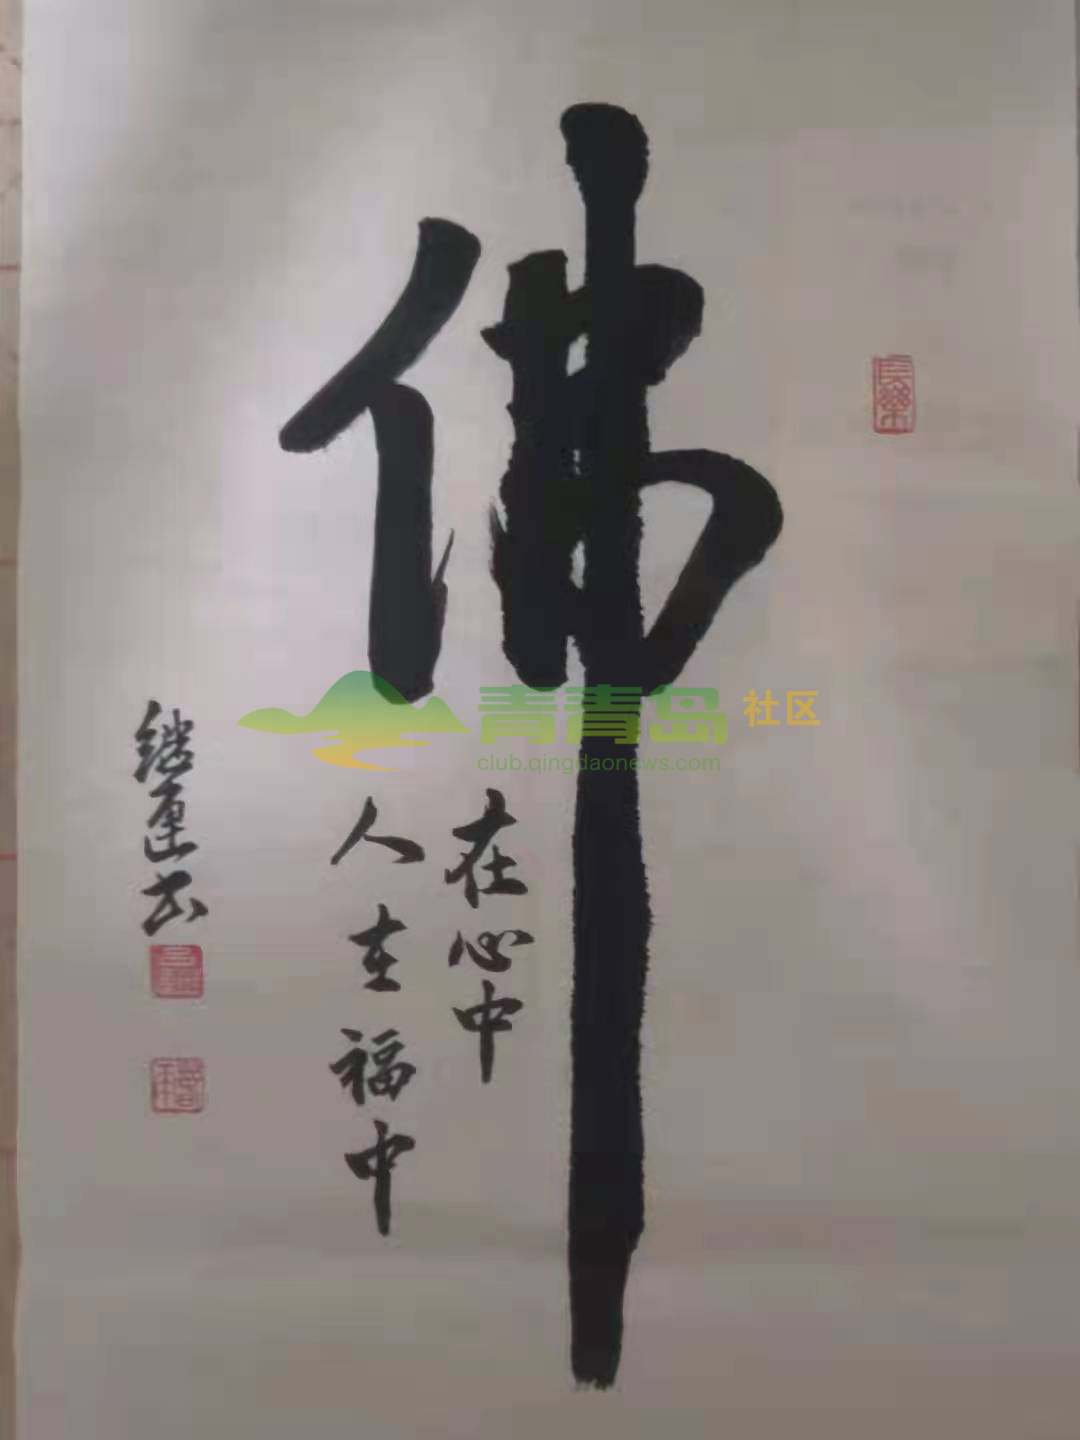 佛
在心中
人在福中
继运书
长乐
青青岛社区
club.qingdaonews.com